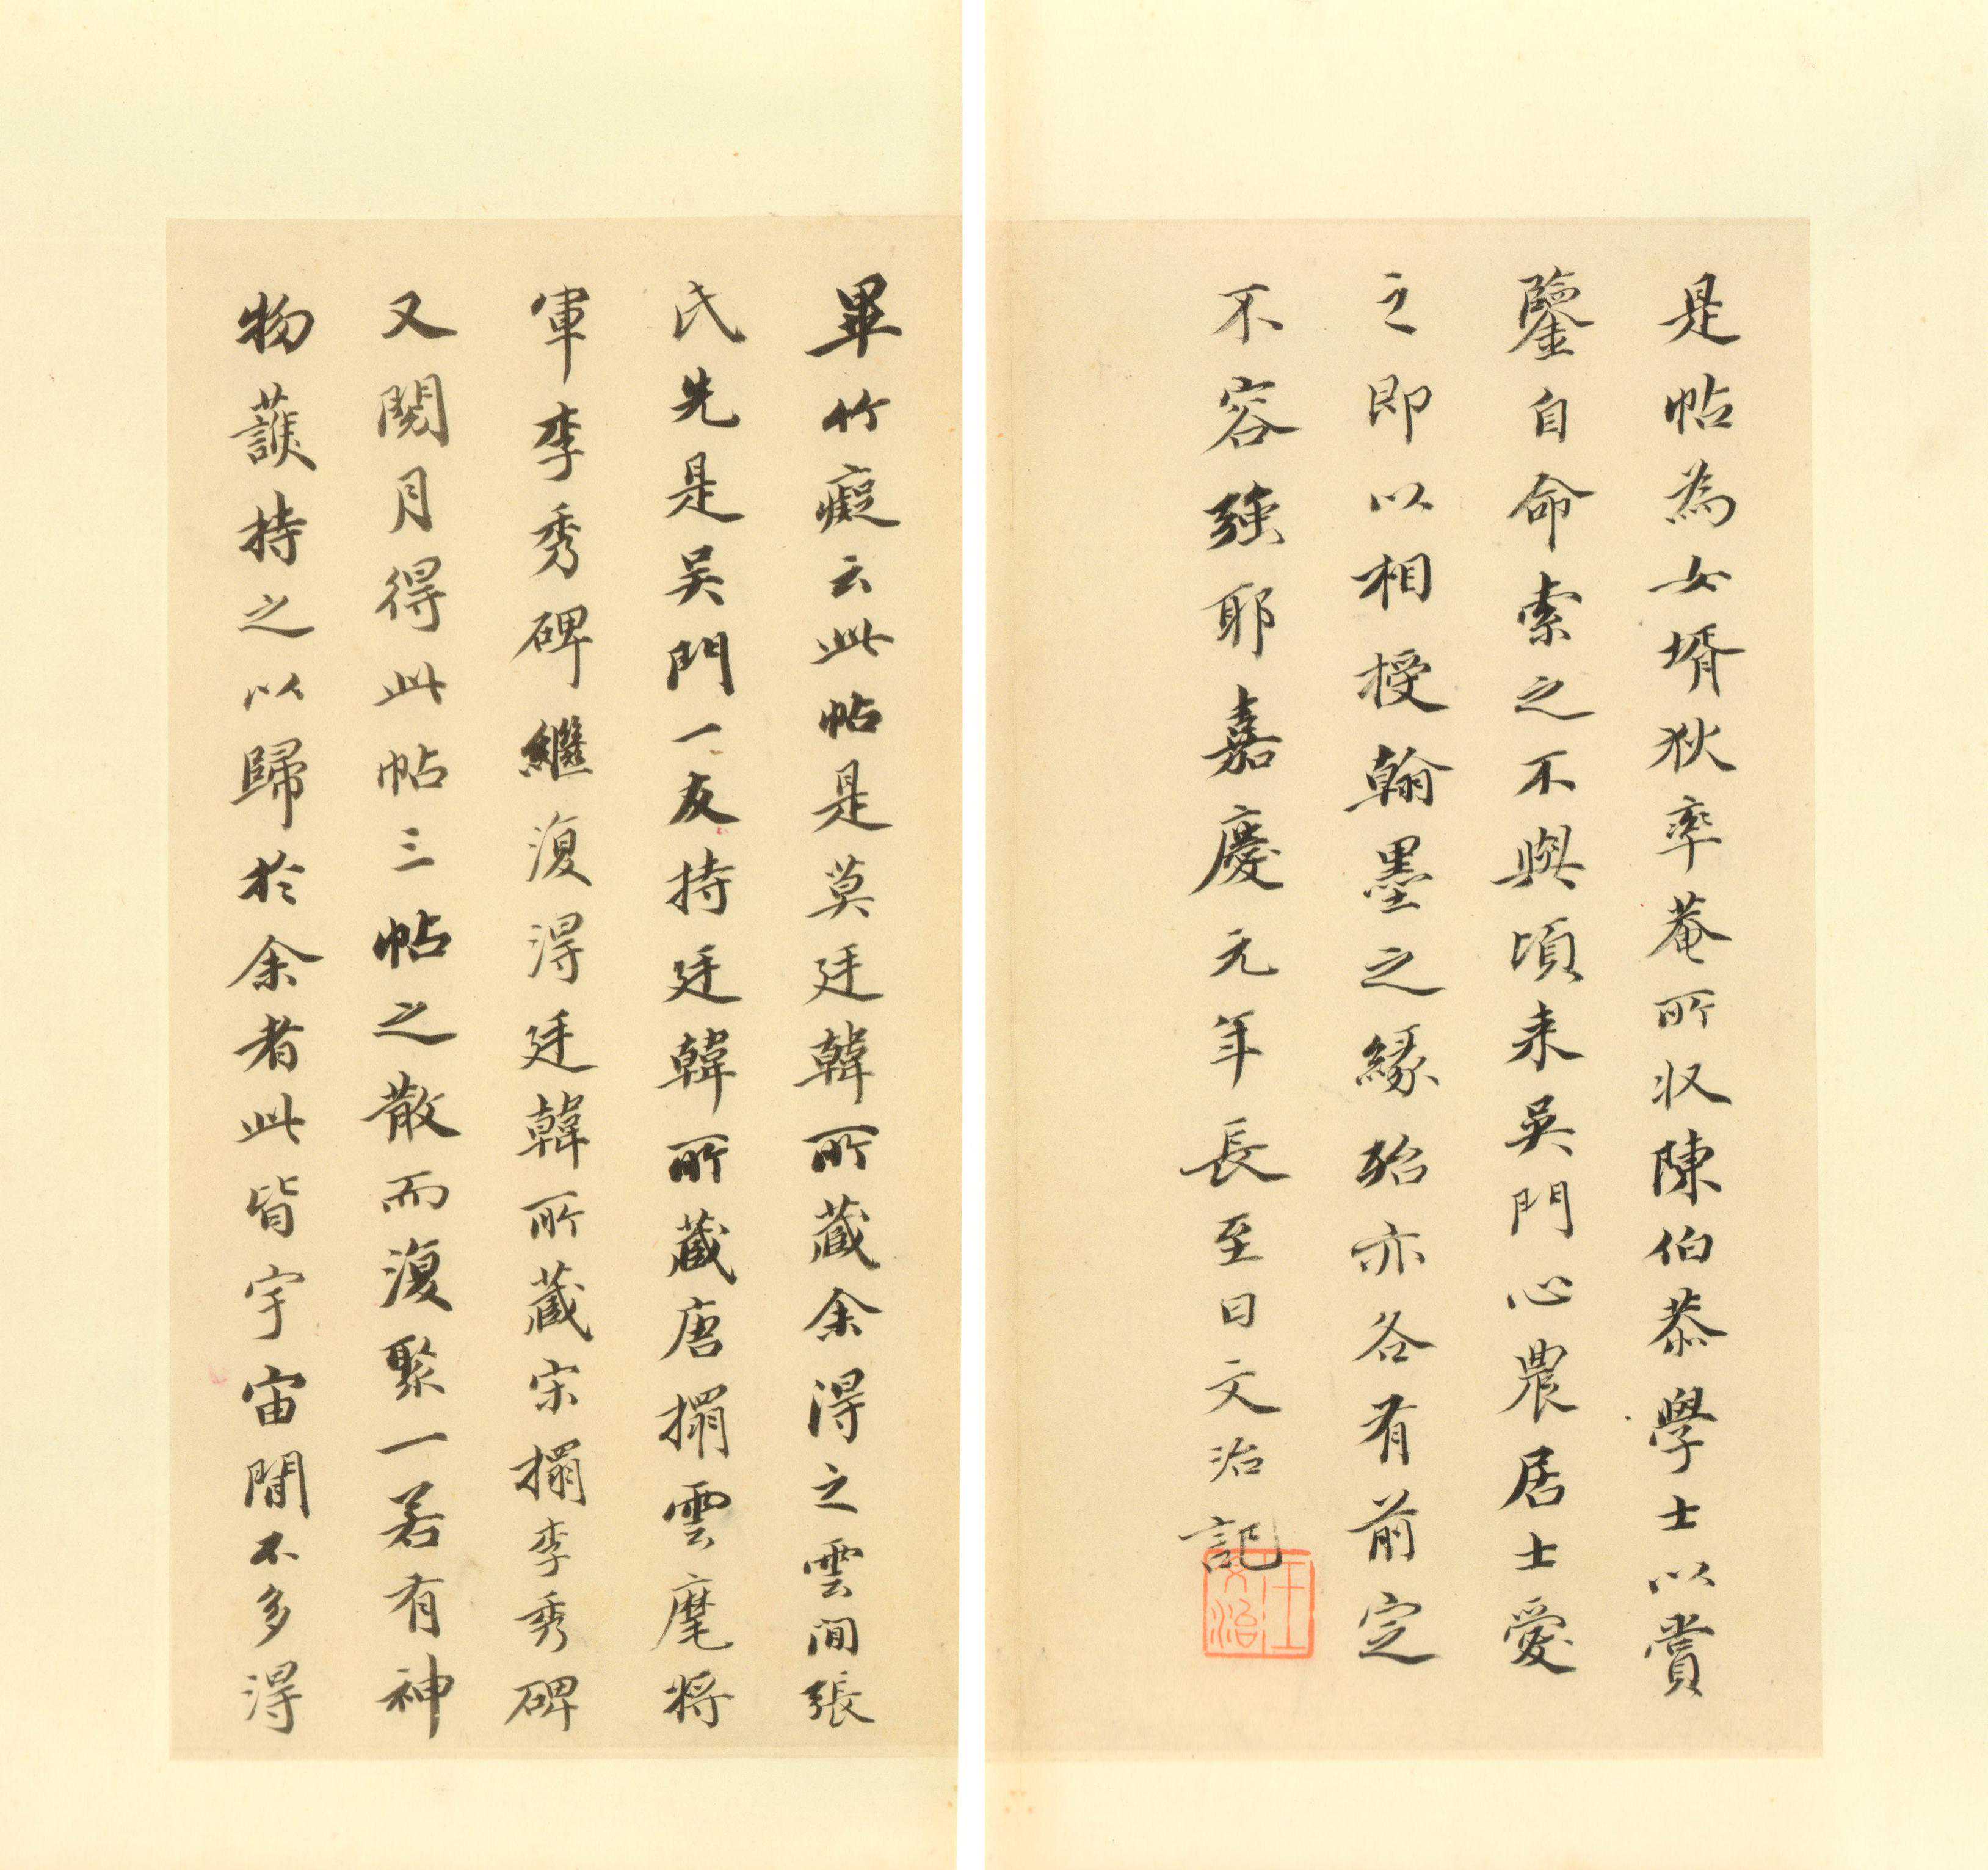 是帖為女壻狄率菴所収陳伯恭學士以賞
鑒自命索之不與頃来吳門心農居士愛
之即以相授翰墨之緣殆亦各有前定
不容強耶嘉慶元年長至日文治記
王文治
畢竹癡云此帖是莫廷韓所藏余得之雲間張
氏先是吳門一友持廷韓所藏唐搨雲麾將
軍李秀碑繼復得廷韓所藏宋搨李秀碑
又閱月得此帖三帖之散而復聚一若有神
物護持之以歸於余者此皆宇宙間不多得